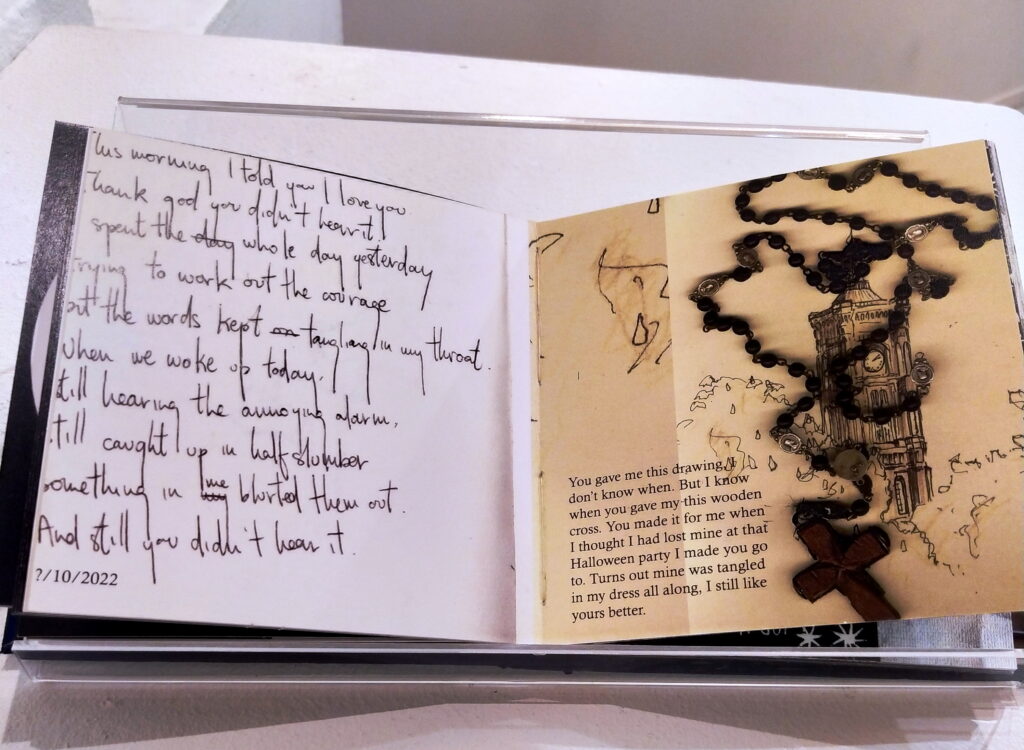 This morning I told you I love you
Thank god you didn't hear it!
spent the day whole day yesterday
trying to work out the courage
but the words kept tangling in my throat.
when we woke up today,
still hearing the annoying alarm,
still caught up in half slumber
something in me blurted them out.
And still you didn't hear it.
?/10/2022
You gave me this drawing, I
don't know when. But I know
when you gave my this wooden
cross. You made it for me when
I thought I had lost mine at that
Halloween party I made you go
to. Turns out mine was tangled
in my dress all along, I still like
yours better.